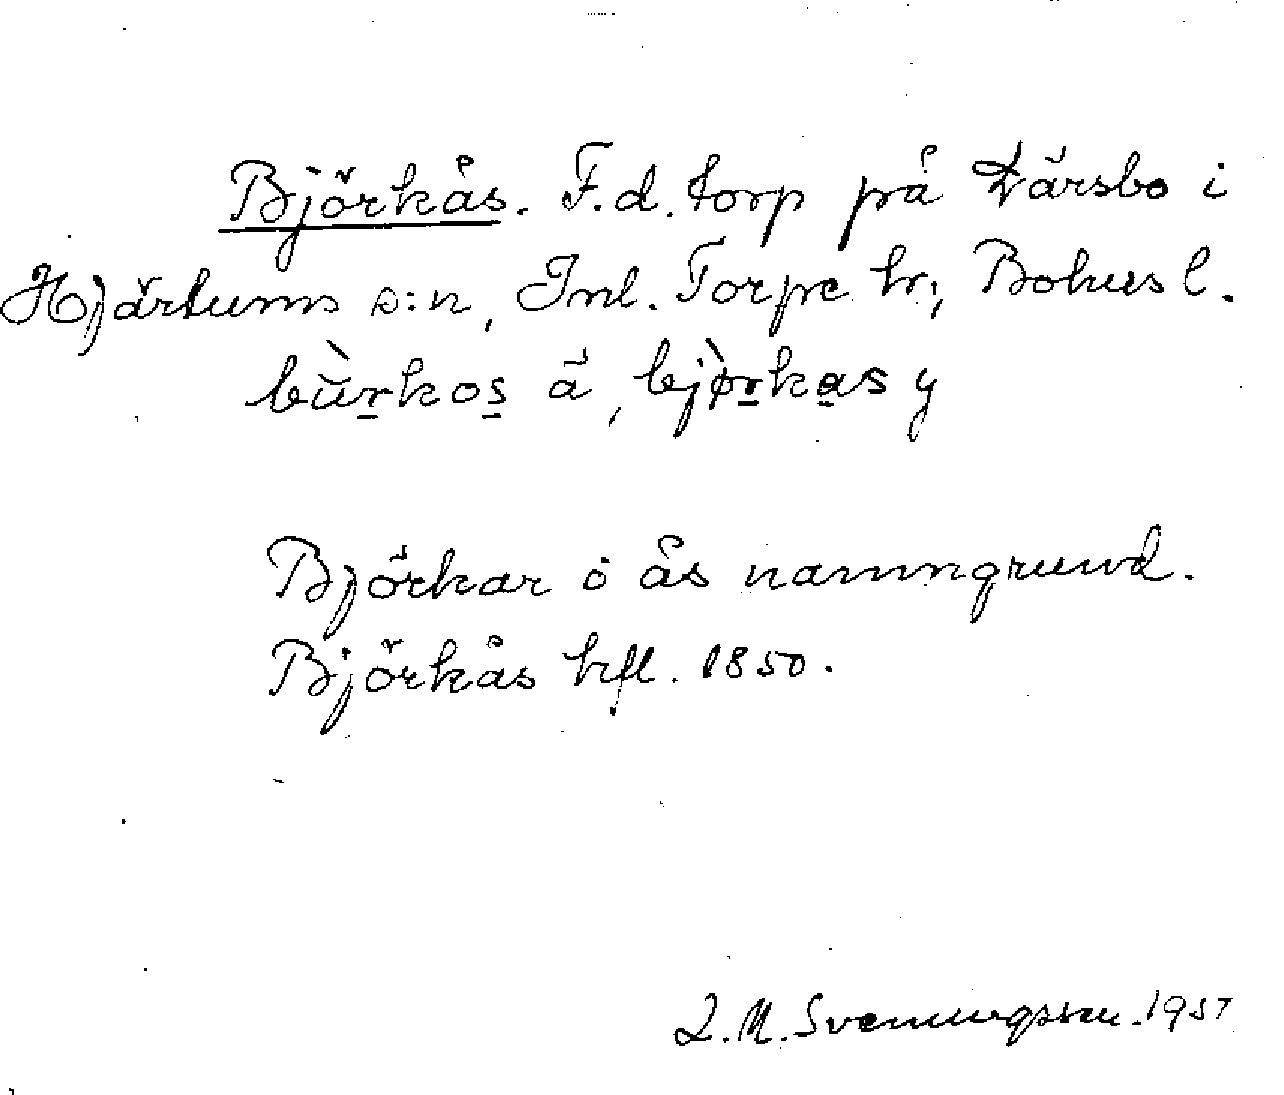 Björkås. F.d. torp på Därsbo i
Hjärtums s:n, Inl. Torpe hr, Bohusl.
bùrkos ä, bjòrkas y
Björkar o ås namngrund.
Björkås hfl. 1850.
L.M. Svenungsson. 1957